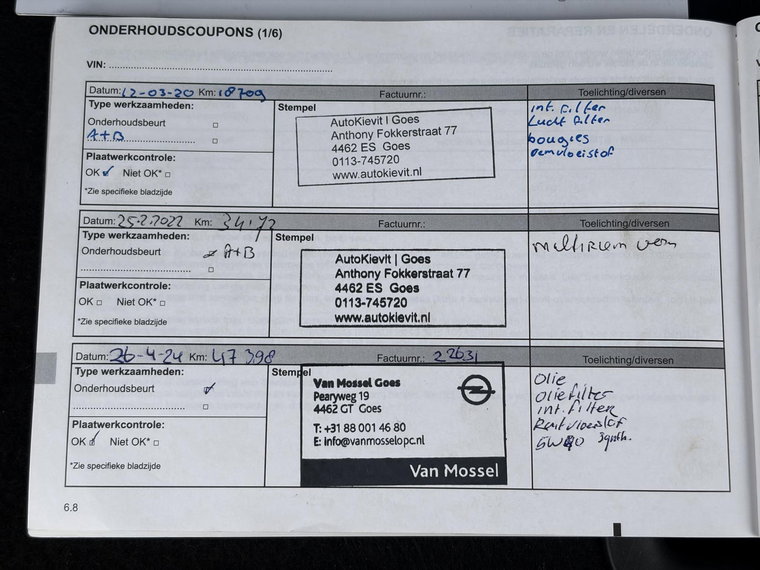 ONDERHOUDSCOUPONS (1/6)
VIN:
Datum: 12-03-20 Km: 18709 Factuurnr.: Toelichting/diversen
Type werkzaamheden:
Onderhoudsbeurt
A+B
Plaatwerkcontrole:
OK Niet OK*
*Zie specifieke bladzijde
Stempel
AutoKievit | Goes
Anthony Fokkerstraat 77
4462 ES Goes
0113-745720
www.autokievit.nl
int. filter
Lucht filter
bougies
remvloeistof
Datum: 25-2-2022 Km: Factuurnr.: Toelichting/diversen
Type werkzaamheden:
Onderhoudsbeurt A+B
Plaatwerkcontrole:
OK Niet OK*
*Zie specifieke bladzijde
Stempel
AutoKievit | Goes
Anthony Fokkerstraat 77
4462 ES Goes
0113-745720
www.autokievit.nl
multiriem
Datum: 26-4-24 Km: 47398 Factuurnr.: 22631 Toelichting/diversen
Type werkzaamheden:
Onderhoudsbeurt
Plaatwerkcontrole:
OK Niet OK*
*Zie specifieke bladzijde
Stempel
Van Mossel Goes
Pearyweg 19
4462 GT Goes
T: +31 88 001 46 80
E: info@vanmosselopc.nl
Van Mossel
Olie
Oliefilter
int. filter
Remvloeistof
6.8